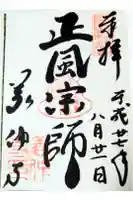 奉拝
平成廿七年
八月廿一日
正風宗師
義仲寺